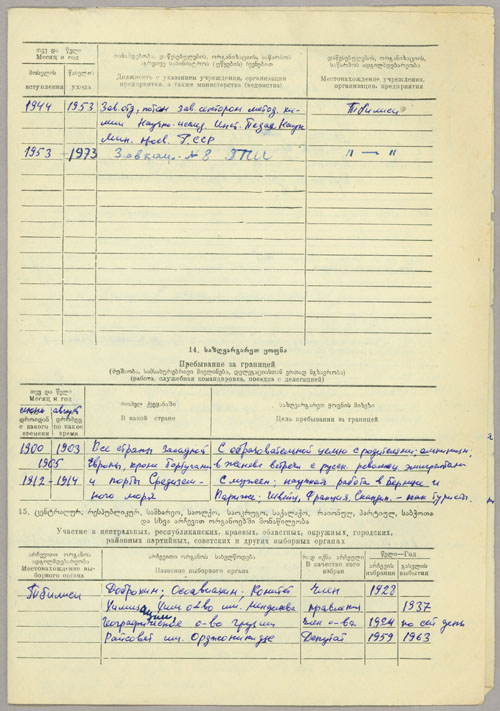 თვე და წელი
Месяц и год
თანამდებობა, დაწესებულების, ორგანიზაციის, საწარმოს
აგრეთვე სამინისტროს (უწყების) ჩვენებით
Должность с указанием учреждения, организации
предприятия, а также министерства (ведомства)
დაწესებულების, ორგანიზაციის,
საწარმოს ადგილმდებარეობა
Местонахождение учреждения,
организации, предприятия
მოსვლის
წასვლის
вступления
ухода
1944 1953 Зав. отд, потом зав. сектором метод. хи-
мии Научно-исслед. Инст. Педаг. Наук
Мин. прос. ГССР
Тбилиси
1953 - 1973 Зав. каф. № 8 ЯПИ " — "
14. საზღვარგარეთ ყოფნა
Пребывание за границей
(მუშაობა, სამსახურებრივი მივლინება, დელეგაციასთან ერთად მგზავრობა)
(работа, служебная командировка, поездка с делегацией)
თვე და წელი
Месяц и год
июнь август
დროიდან
с какого
времени
დრომდე
по какое
время
რომელ ქვეყანაში
В какой стране
საზღვარგარეთ ყოფნის მიზეზი
Цель пребывания за границей
1900 1903 Все страны западной С образовательной целью с родителями;
1905 Европы, кроме Португалии в Женеве встречи с русск. революц. эмигрантами
1912-1914 и порты Средизем- С мужем; научная работа в Бернуе и
ного моря Париже; Швейц, Франция, Сканди. - как туристы.
15. ცენტრალურ, რესპუბლიკურ, სამხარეო, საოლქო, საოკრუგო, საქალაქო, რაიონულ, პარტიულ, საბჭოთა
და სხვა არჩევით ორგანოებში მონაწილეობა
Участие в центральных, республиканских, краевых, областных, окружных, городских,
районных партийных, советских и других выборных органах
არჩევითი ორგანოს
ადგილმდებარეობა
Местонахождение вы-
борного органа
არჩევითი ორგანოს სახელწოდება
Название выборного органа
რად იქნა არჩეული
В качестве кого
избран
წელი—Год
არჩევის
избрания
გასვლის
выбытия
Тбилиси Доброхим; Осоавиахим; Комитет Член 1922
Химизации; Хим. о-во им. Менделеева правления 1937
Географическое о-во Грузии Член о-ва 1924 по сей день
Райсовет им. Орджоникидзе Депутат 1959 1963